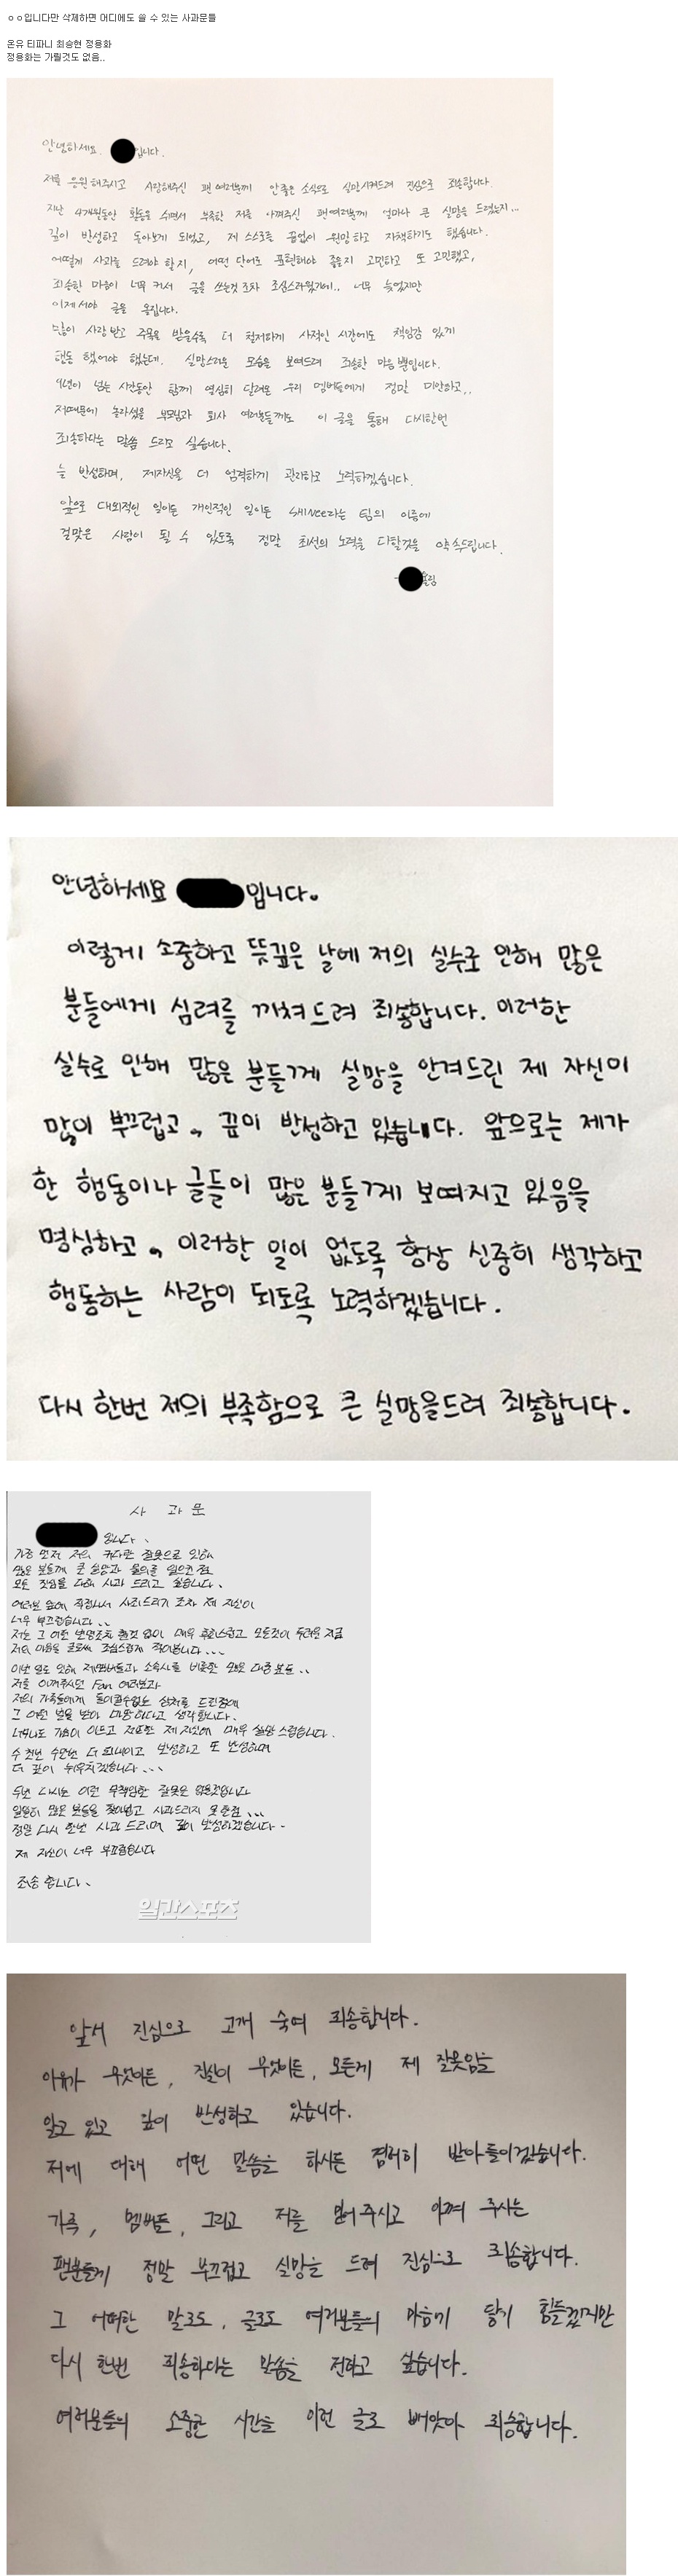 ㅇㅇ입니다만 삭제하면 어디에도 쓸 수 있는 사과문들
온유 티파니 최승현 정용화
정용화는 가릴것도 없음..
안녕하세요. 입니다.
저를 응원해주시고 사랑해주신 팬 여러분께 안좋은 소식으로 실망시켜드려 진심으로 죄송합니다.
지난 4개월동안 활동을 쉬면서 부족한 저를 아껴주신 팬여러분께 얼마나 큰 실망을 드렸는지...
깊이 반성하고 돌아보게 되었고, 제 스스로를 끝없이 원망하고 자책하기도 했습니다.
어떻게 사과를 드려야 할지, 어떤 단어로 표현해야 좋을지 고민하고 또 고민했고,
죄송한 마음이 너무 커서 글을 쓰는것 조차 조심스러웠기에.. 너무 늦었지만
이제서야 글을 올립니다.
많이 사랑받고 주목을 받을수록 더 철저하게 사적인 시간에도 책임감 있게
행동 했어야 했는데. 실망스러운 모습을 보여드려 죄송한 마음 뿐입니다.
9년이 넘는 시간동안 함께 열심히 달려온 우리 멤버들에게 정말 미안하고..
저때문에 놀라셨을 부모님과 회사 여러분들께도 이 글을 통해 다시한번
죄송하다는 말씀 드리고 싶습니다.
늘 반성하며, 제자신을 더 엄격하게 관리하고 노력하겠습니다.
앞으로 대외적인 일이든 개인적인 일이든 SHINee라는 팀의 이름에
걸맞은 사람이 될 수 있도록 정말 최선의 노력을 다할것을 약속드립니다.
올림
안녕하세요 입니다.
이렇게 소중하고 뜻깊은 날에 저의 실수로 인해 많은
분들에게 심려를 끼쳐드려 죄송합니다. 이러한
실수로 인해 많은 분들께 실망을 안겨드린 제 자신이
많이 부끄럽고, 깊이 반성하고 있습니다. 앞으로는 제가
한 행동이나 글들이 많은 분들께 보여지고 있음을
명심하고, 이러한 일이 없도록 항상 신중히 생각하고
행동하는 사람이 되도록 노력하겠습니다.
다시 한번 저의 부족함으로 큰 실망을드려 죄송합니다.
사 과 문
입니다.
가장 먼저 저의 커다란 잘못으로 인해
많은 분들께 큰 실망과 물의를 일으킨 점
모든 진심을 다해 사과 드리고 싶습니다.
여러분 앞에 직접나서 사죄드리기 조차 제 자신이
너무 부끄럽습니다..
저는 그 어떤 변명조차 할것 없이 매우 후회스럽고 모든것이 두려운 지금
저의 마음을 글로써 조심스럽게 적어봅니다...
이번 일로 인해 제멤버들과 소속사를 비롯한 모든 대중 분들..
저를 아껴주시던 Fan 여러분과
저의 가족들에게 돌이킬수없는 상처를 드린점에
그 어떤 벌을 받아 마땅하다고 생각합니다.
너무나도 가슴이 아프고 저또한 제 자신에 매우 실망 스럽습니다.
수 천번 수만번 더 되내이고 반성하고 또 반성하며
더 깊이 뉘우치겠습니다...
두번 다시는 이런 무책임한 잘못은 없을것입니다
일일이 많은 분들을 찾아뵙고 사과드리지 못한점...
정말 다시 한번 사과 드리며 깊이 반성하겠습니다.
제 자신이 너무 부끄럽습니다
죄송 합니다.
일간스포츠
앞서 진심으로 고개 숙여 죄송합니다.
이유가 무엇이든, 진실이 무엇이든, 모든게 제 잘못임을
알고 있고 깊이 반성하고 있습니다.
저에 대해 어떤 말씀을 하시든 겸허히 받아들이겠습니다.
가족, 멤버들, 그리고 저를 믿어주시고 아껴 주시는
팬분들께 정말 부끄럽고 실망을 드려 진심으로 죄송합니다.
그 어떠한 말로도, 글로도 여러분들의 마음에 닿기 힘들겠지만
다시 한번 죄송하다는 말씀을 전하고 싶습니다.
여러분들의 소중한 시간을 이런 글로 빼앗아 죄송합니다.